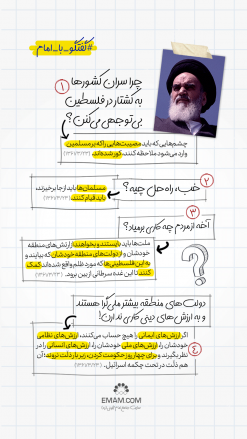 #گفتگو_با_امام
چرا سران کشورها
به کشتار در فلسطین
بی‌توجهی می‌کنن؟
۱
چشم‌هایی که باید مصیبت‌هایی را که بر مسلمین
وارد می‌شود ملاحظه کنند، کور شده‌اند.
۲
خب، راه حل چیه؟
مسلمان‌ها باید از جا برخیزند،
باید قیام کنند.
۳
آخه از مردم چه کاری برمیاد؟
ملت‌ها باید بایستند و بخواهند از ارتش‌های منطقه
خودشان و از دولت‌های منطقه خودشان که بیایند و
به این فلسطینی‌ها که مورد ظلم واقع شده‌اند کمک
کنند تا این غده سرطانی از بین برود.
دولت‌های منطقه بیشتر ملی‌گرا هستند
و به ارزش های دینی کاری ندارن!
۴
اگر ارزش‌های ایمانی را هیچ حساب می‌کنند، ارزش‌های نظامی
خودشان را، ارزش‌های ملی خودشان را، ارزش‌های انسانی را در
نظر بگیرند و برای چهار روز حکومت کردن، زیر بار ذلت نروند؛ آن
هم ذلت در تحت چکمه اسرائیل.
EMAM.COM